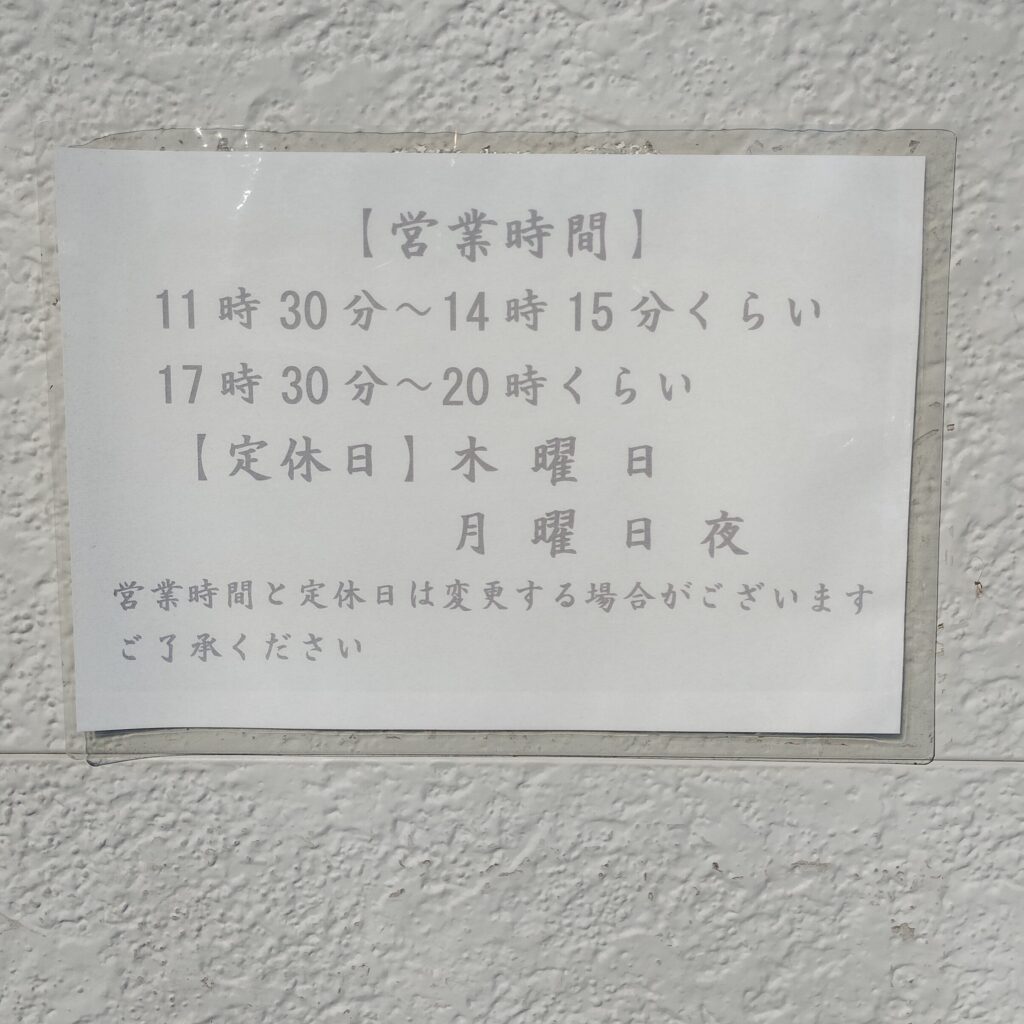 【営業時間】
11時30分～14時15分くらい
17時30分～20時くらい
【定休日】木曜日
月曜日夜
営業時間と定休日は変更する場合がございます
ご了承ください